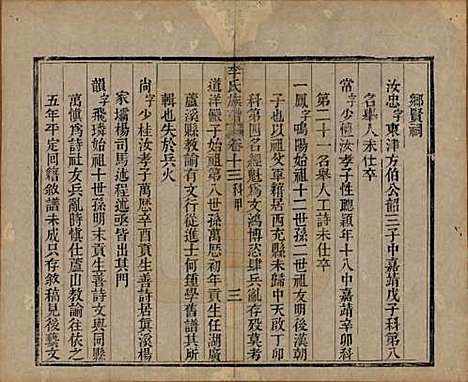 鄉賢祠
汝忠字東津方伯公韶三子中嘉靖戊子科第八
名舉人未仕卒
常字少檀汝孝子性聰穎年十八中嘉靖辛卯科
第二十一名舉人工詩未仕卒
一鳳字鳴陽始祖十二世孫二世祖友明後漢朝
子也以祖父軍籍居西充縣未歸中天啟丁卯
科第四名經魁為文鴻博恣肆兵亂存歿莫考
李氏族譜 卷十三 科甲 三
道洋懷于始祖第八世孫萬曆初年貢生任湖廣
蘆溪縣教諭有文行從進士何鍾學舊譜其所
輯也失於兵火
尚字少桂汝孝子萬曆辛酉貢生善詩居箕溪楊
家壩楊司馬述程述丞皆出其門
韻字飛璘始祖十世孫明末貢生善詩文與同縣
萬慎為詩社友兵亂時慎仕蘆山教諭往依之
五年平定回敘譜未成只存敘稿見後藝文